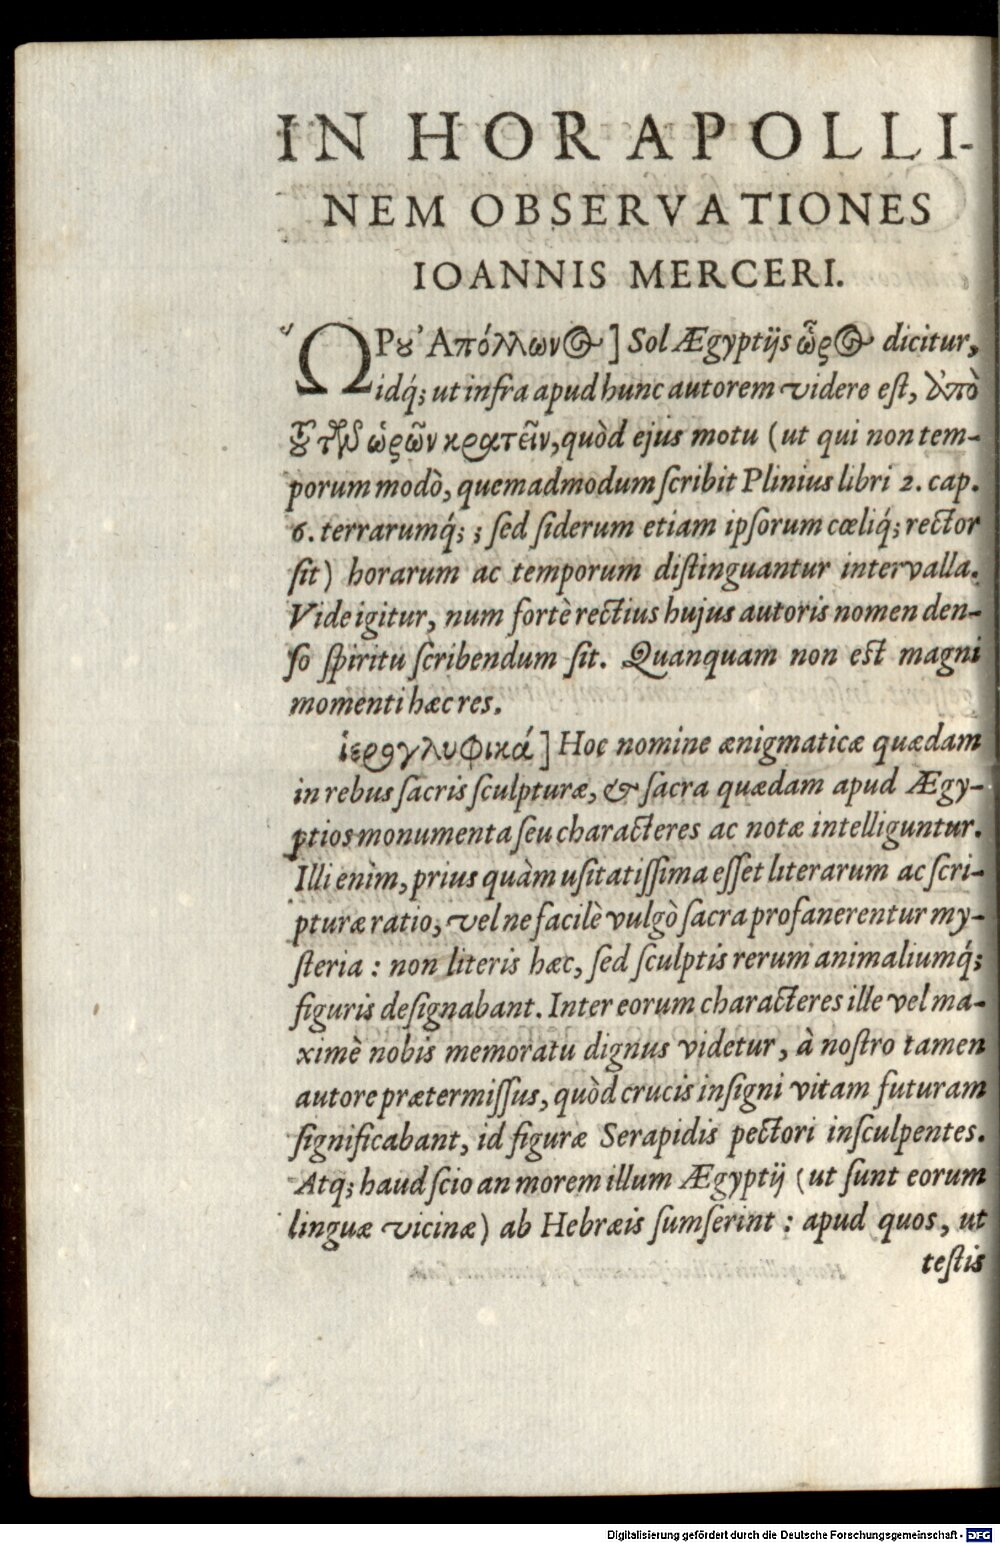 IN HORAPOLLI-
NEM OBSERVATIONES
IOANNIS MERCERI.
ὨΡȣ Ἀπόλλωνος] Sol Ægyptijs ὧρος dicitur,
idq́; ut infra apud hunc autorem videre est, ἀπὸ
τȣ τῶν ὡρῶν κρατεῖν, quòd ejus motu (ut qui non tem-
porum modò, quemadmodum scribit Plinius libri 2. cap.
6. terrarumq́; ; sed siderum etiam ipsorum cœliq́; rector
sit) horarum ac temporum distinguantur intervalla.
Vide igitur, num fortè rectius hujus autoris nomen den-
so spiritu scribendum sit. Quanquam non est magni
momenti hæc res.
ἱερογλυφικά] Hoc nomine ænigmaticæ quædam
in rebus sacris sculpturæ, & sacra quædam apud Ægy-
ptios monumenta seu characteres ac notæ intelliguntur.
Illi enìm, prius quàm usitatissima esset literarum ac scri-
pturæ ratio, vel ne facilè vulgò sacra profanerentur my-
steria : non literis hæc, sed sculptis rerum animaliumq́;
figuris designabant. Inter eorum characteres ille vel ma-
ximè nobis memoratu dignus videtur, à nostro tamen
autore prætermissus, quòd crucis insigni vitam futuram
significabant, id figuræ Serapidis pectori insculpentes.
Atq; haud scio an morem illum Ægyptij (ut sunt eorum
linguæ vicinæ) ab Hebræis sumserint : apud quos, ut
testis
Digitalisierung gefördert durch die Deutsche Forschungsgemeinschaft - DFG